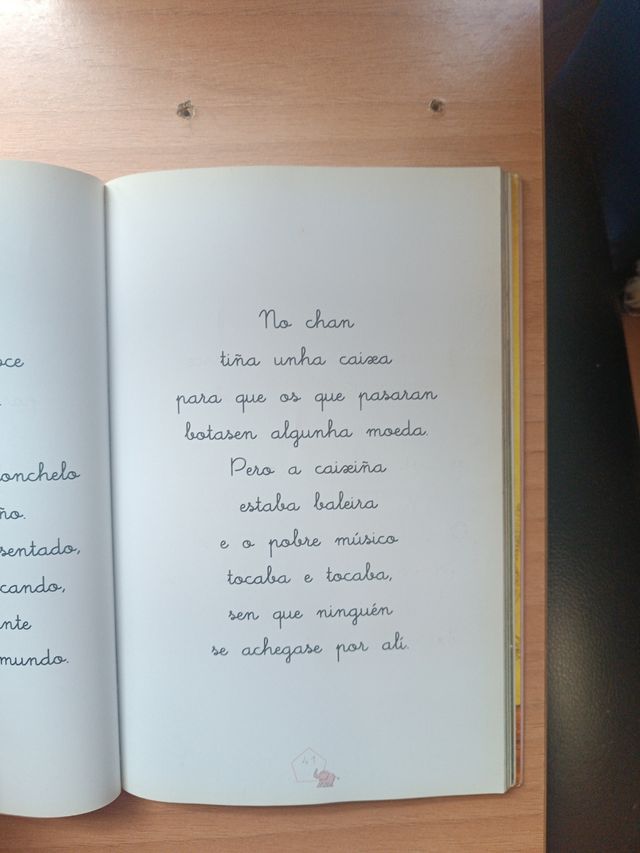 oce
onchelo
ño.
sentado,
cando,
nte
mundo.
No chan
tiña unha caixa
para que os que pasaran
botasen algunha moeda.
Pero a caixiña
estaba baleira
e o pobre músico
tocaba e tocaba,
sen que ninguén
se achegase por alí.
41